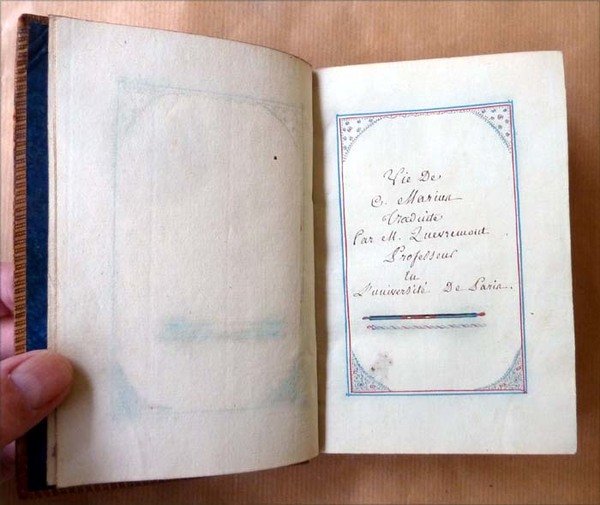 Vie De
C. Marius
Traduite
Par M. Querremont
Professeur
En
L'université De Paris.